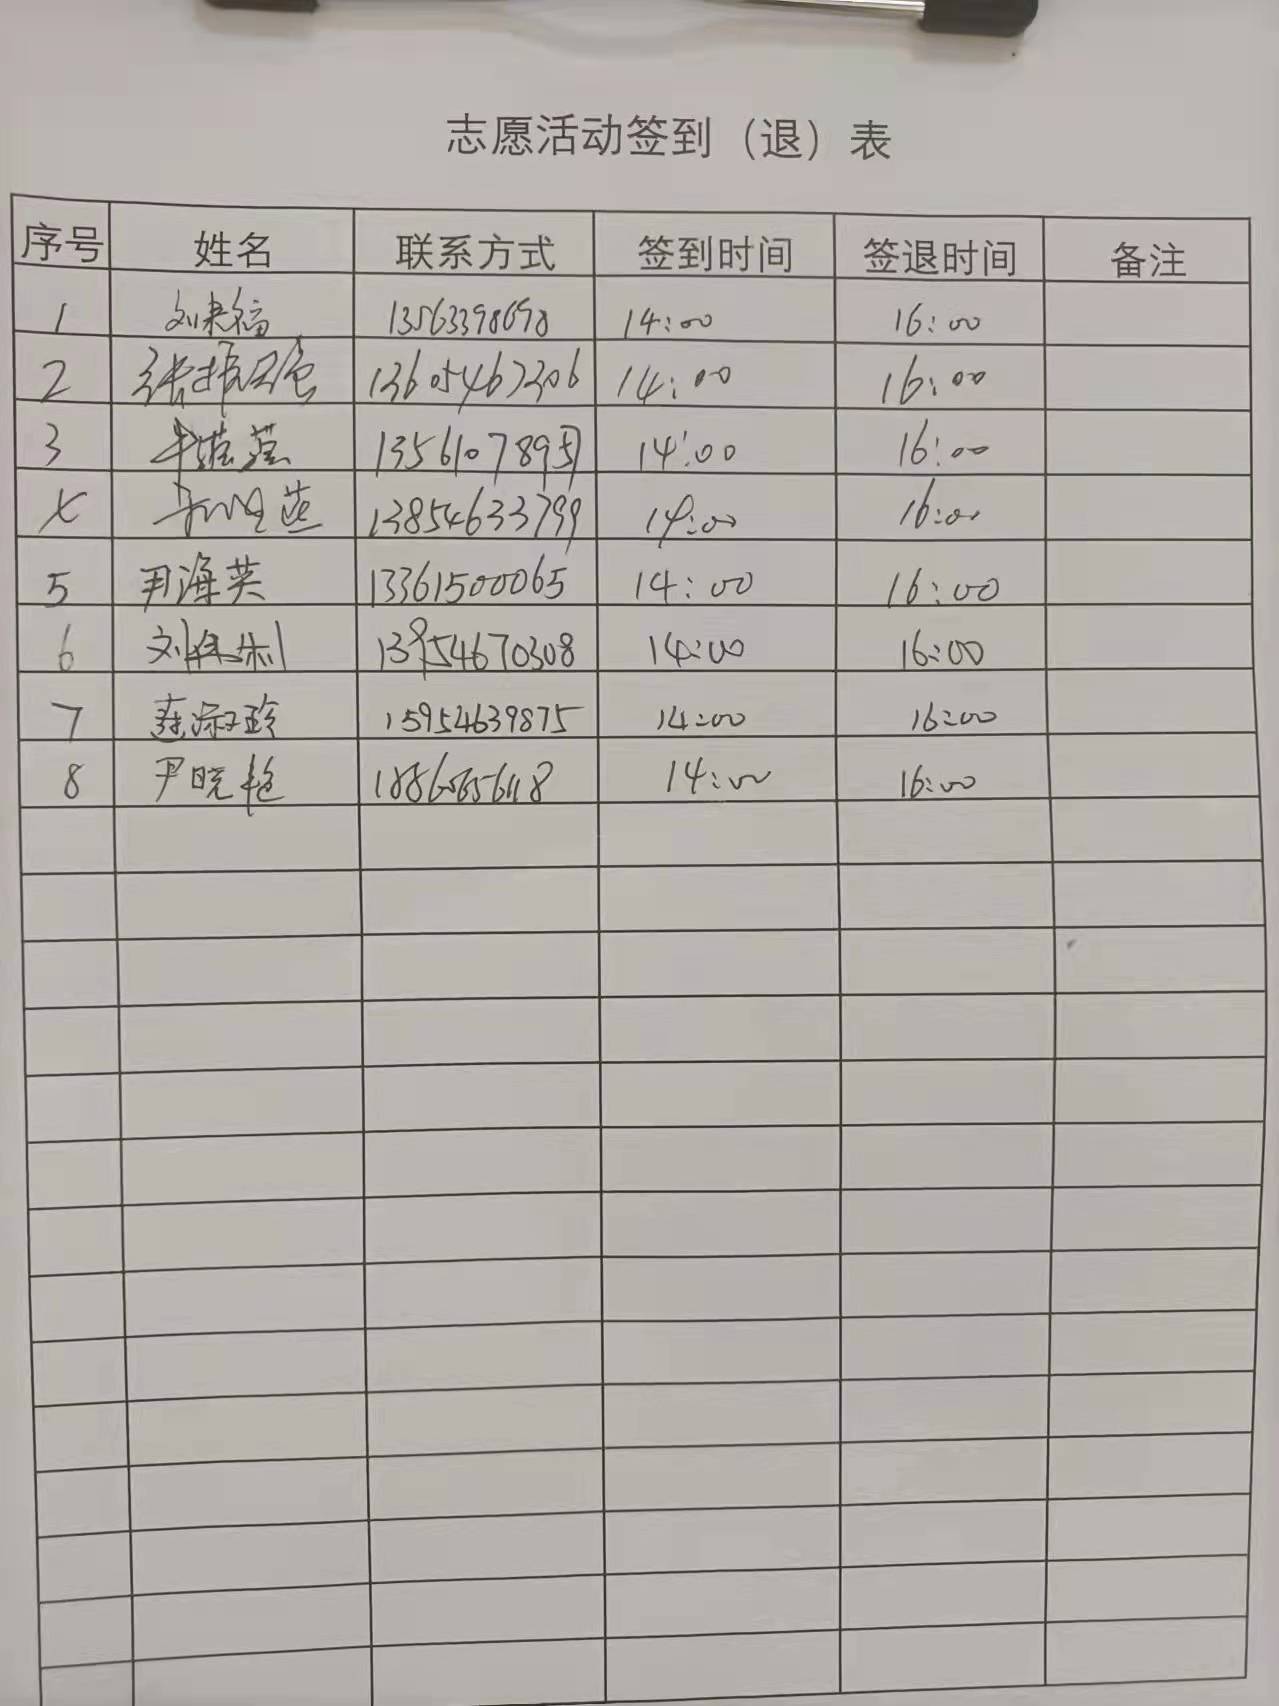 志愿活动签到（退）表
序号 姓名 联系方式 签到时间 签退时间 备注
1 刘来福 13563398698 14:00 16:00
2 张 13605467306 14:00 16:00
3 14:00 16:00
13854633799 14:00 16:00
5 尹海英 13361500065 14:00 16:00
6 刘 13954670308 14:00 16:00
7 15954639875 14:00 16:00
8 尹晓艳 14:00 16:00